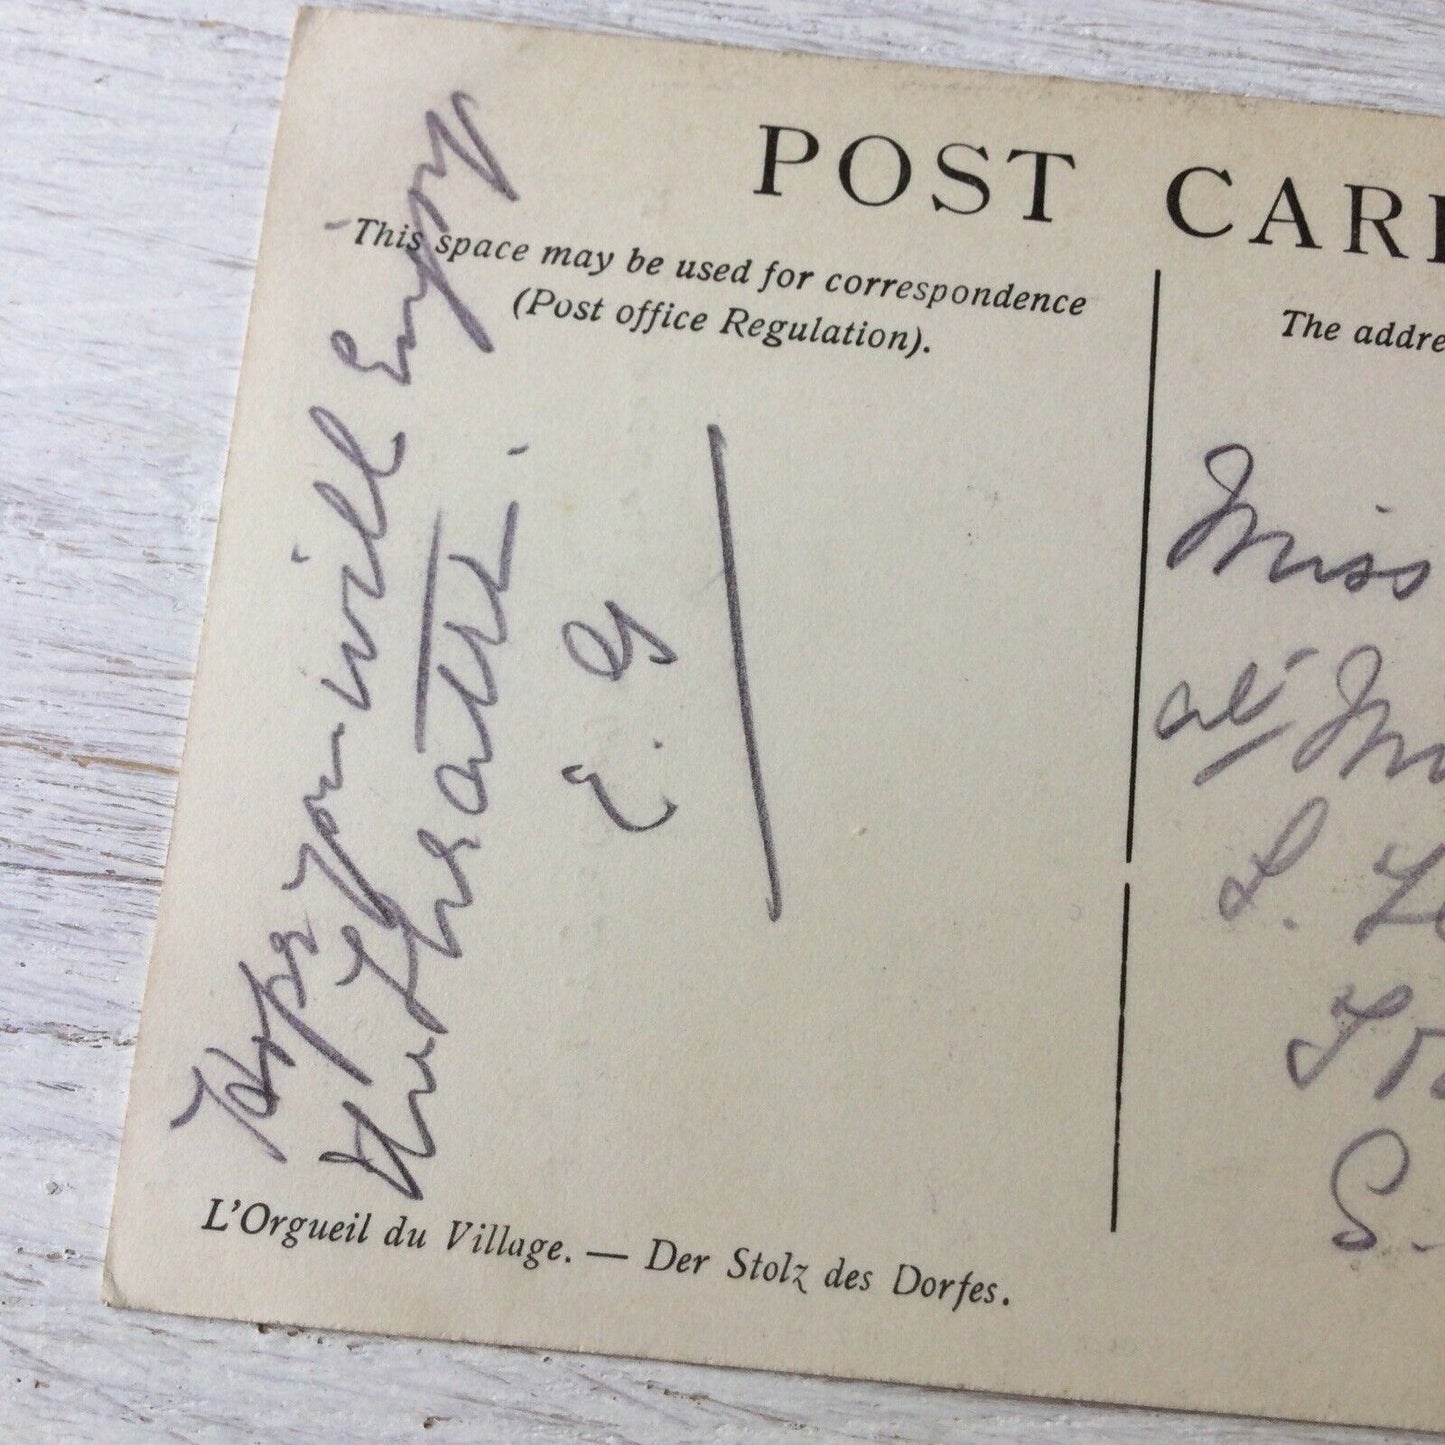 POST CAR
This space may be used for correspondence
(Post office Regulation).
The addre
Hope you will Enjoy
the
E. G
Miss
at
L.
S.
L'Orgueil du Village. — Der Stolz des Dorfes.